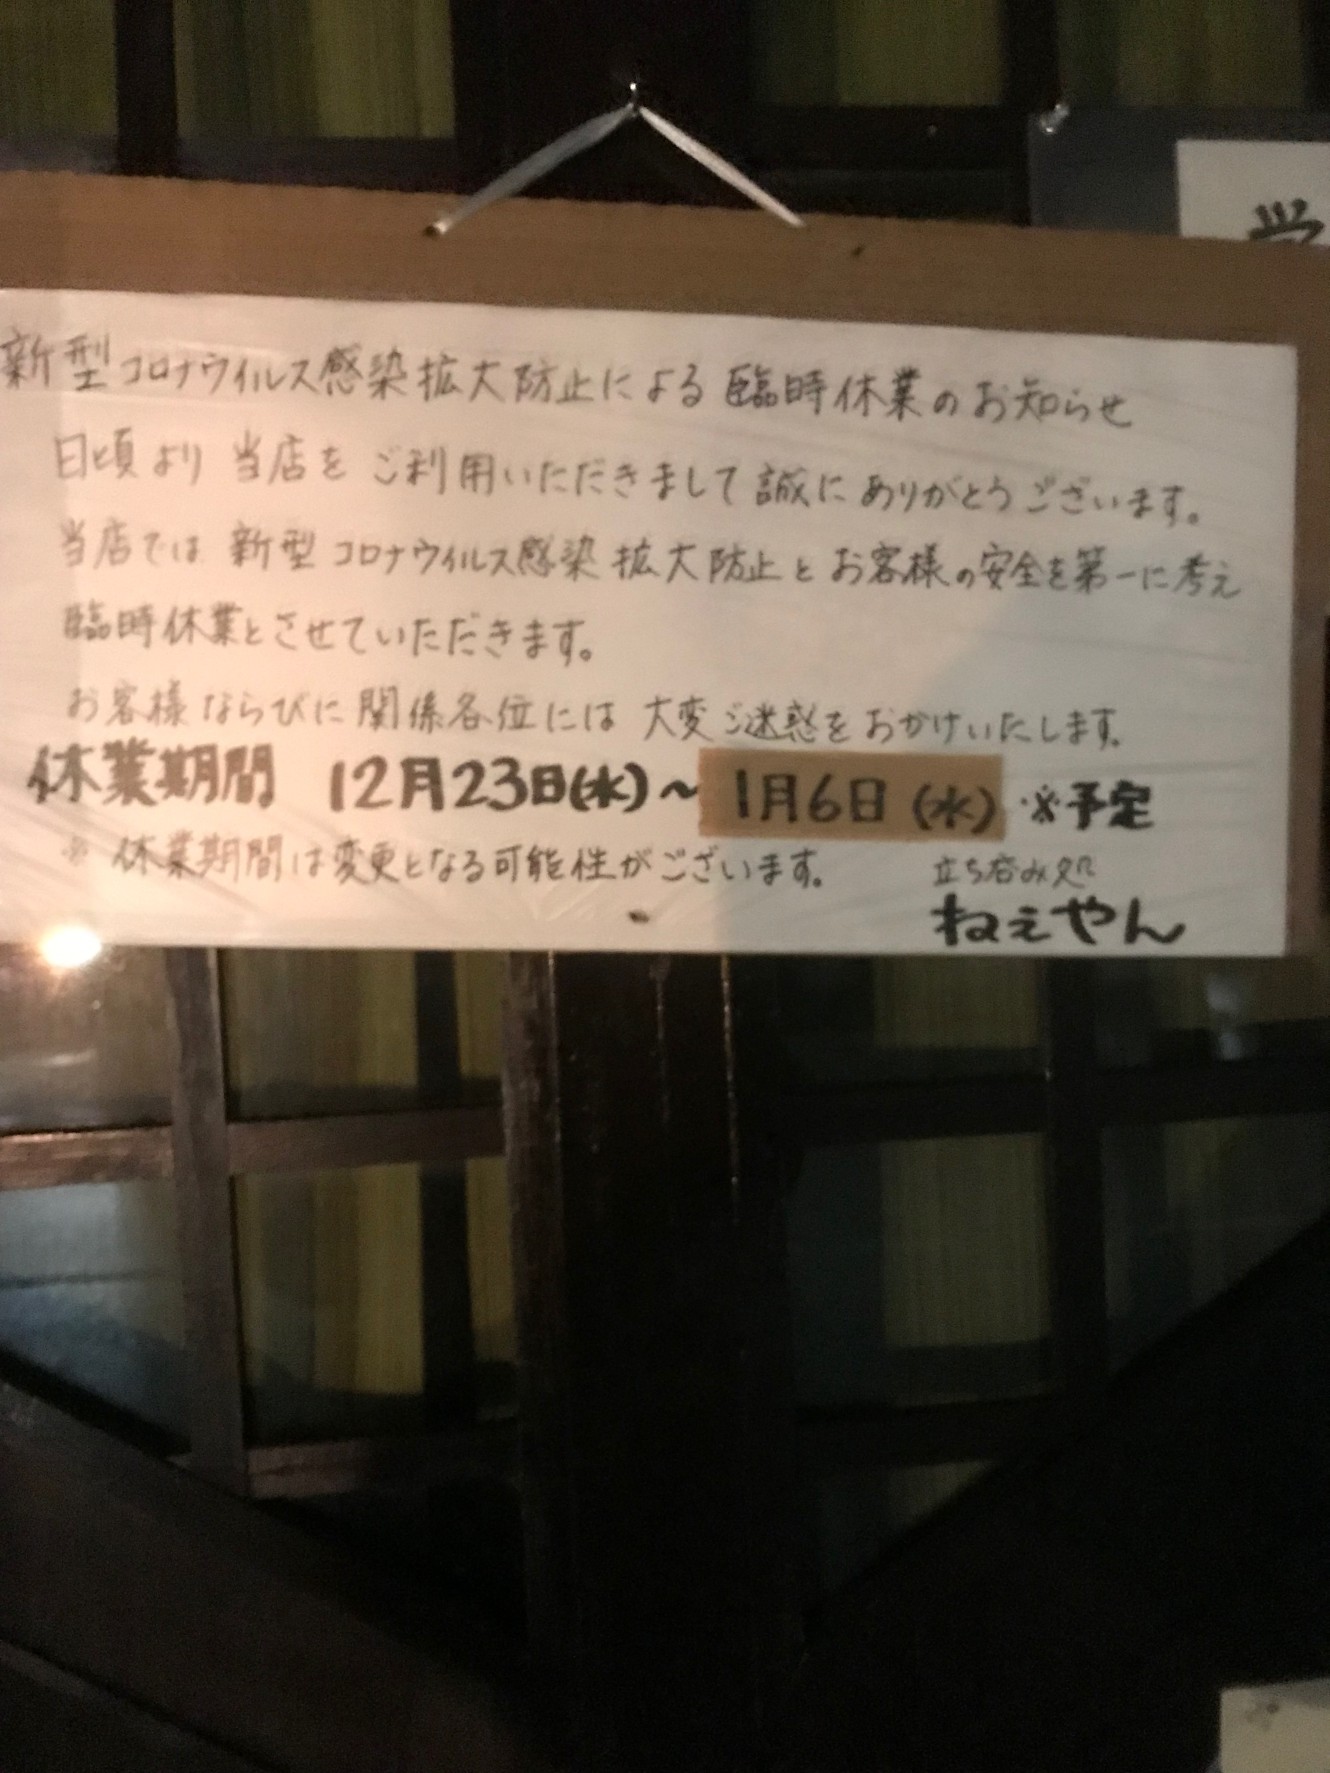 新型コロナウイルス感染拡大防止による臨時休業のお知らせ
日頃より当店をご利用いただきまして誠にありがとうございます。
当店では新型コロナウイルス感染拡大防止とお客様の安全を第一に考え
臨時休業とさせていただきます。
お客様ならびに関係各位には大変ご迷惑をおかけいたします。
休業期間 12月23日(水)~1月6日(水)※予定
※休業期間は変更となる可能性がございます。
立ち呑み処
ねぇやん